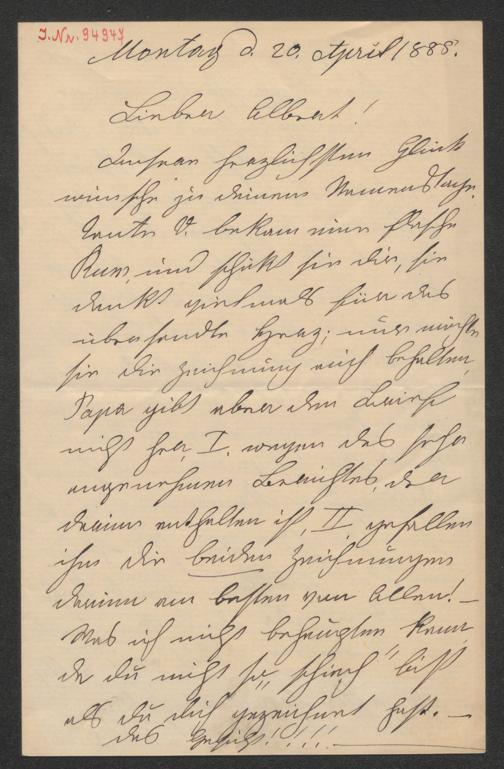 J.Nr. 94947
Montag d. 20. April 1888.
Lieber Albert!
Unsern herzlichsten Glück
wünsche zu deinem Namenstage.
Tante V. bekam eine Flasche
Rum, und schickt sie dir, sie
dankt vielmals für das
übersandte Herz; nur möchte
sie die Zeichnung auch behalten,
Papa gibt aber den Brief
nicht her, I. wegen des sehr
angenehmen Berichtes, der
darin enthalten ist, II gefallen
ihm die beiden Zeichnungen
darinn am besten von Allen! —
Was ich nicht behaupten kann,
da du nicht so „schiech" bist
als du dich gezeichnet hast. —
das Gesicht!!!!! —